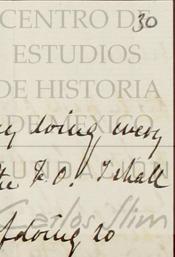 30
CENTRO DE
ESTUDIOS
DE HISTORIA
DE MEXICO
doing every
I shall
FUNDACIÓN
Carlos Slim
doing so